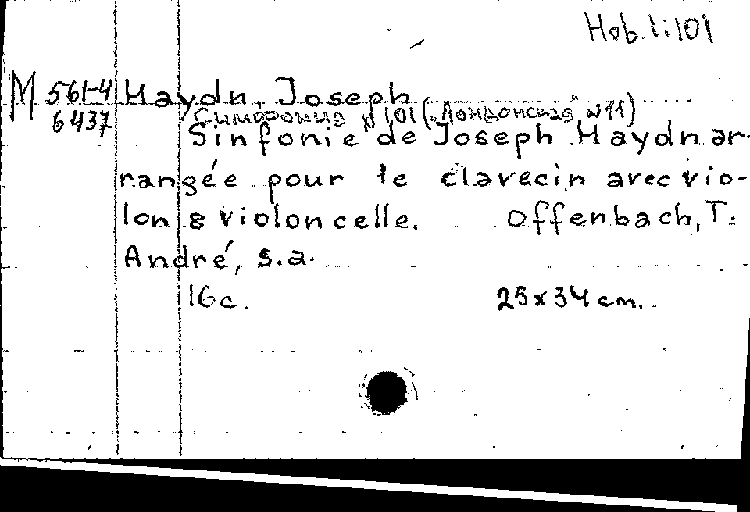 Hob. I:101
M 561-4
6437
Haydn, Joseph
Симфония №101 („Лондонская" №11)
Sinfonie de Joseph Haydn ar-
rangée pour le clavecin avec vio-
lon & violoncelle. Offenbach, J.
André, s.a.
16c. 25x34 cm.